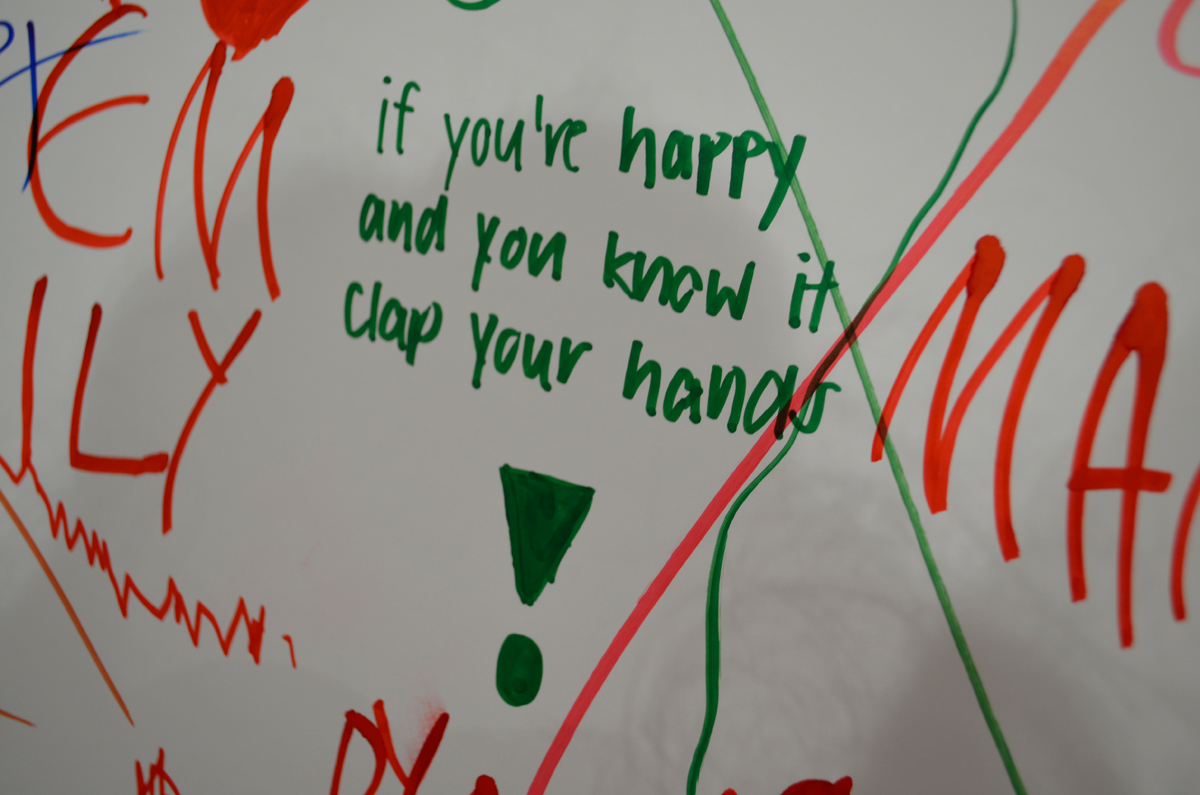 EM
ILY
if you're happy
and you know it
clap your hands
!
MA